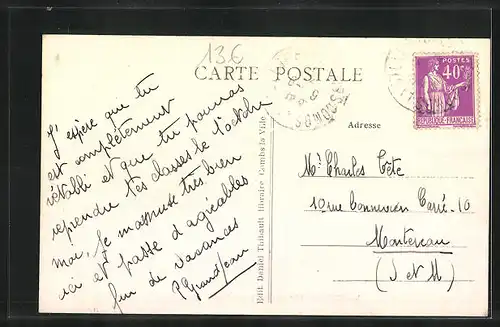 136
CARTE POSTALE
J'espère que tu
est complètement
rétabli et que tu pourras
reprendre tes classes le 1 octobre
moi. Je m'amuse très bien
ici et passe d'agréables
fin de vacances
P Grandjean
Edit. Daniel Thibault libraire Combs la Ville
POSTES
40c
REPUBLIQUE FRANÇAISE
Adresse
Mr Charles Tête
10 rue Carré. 10
Montereau
(S et M)